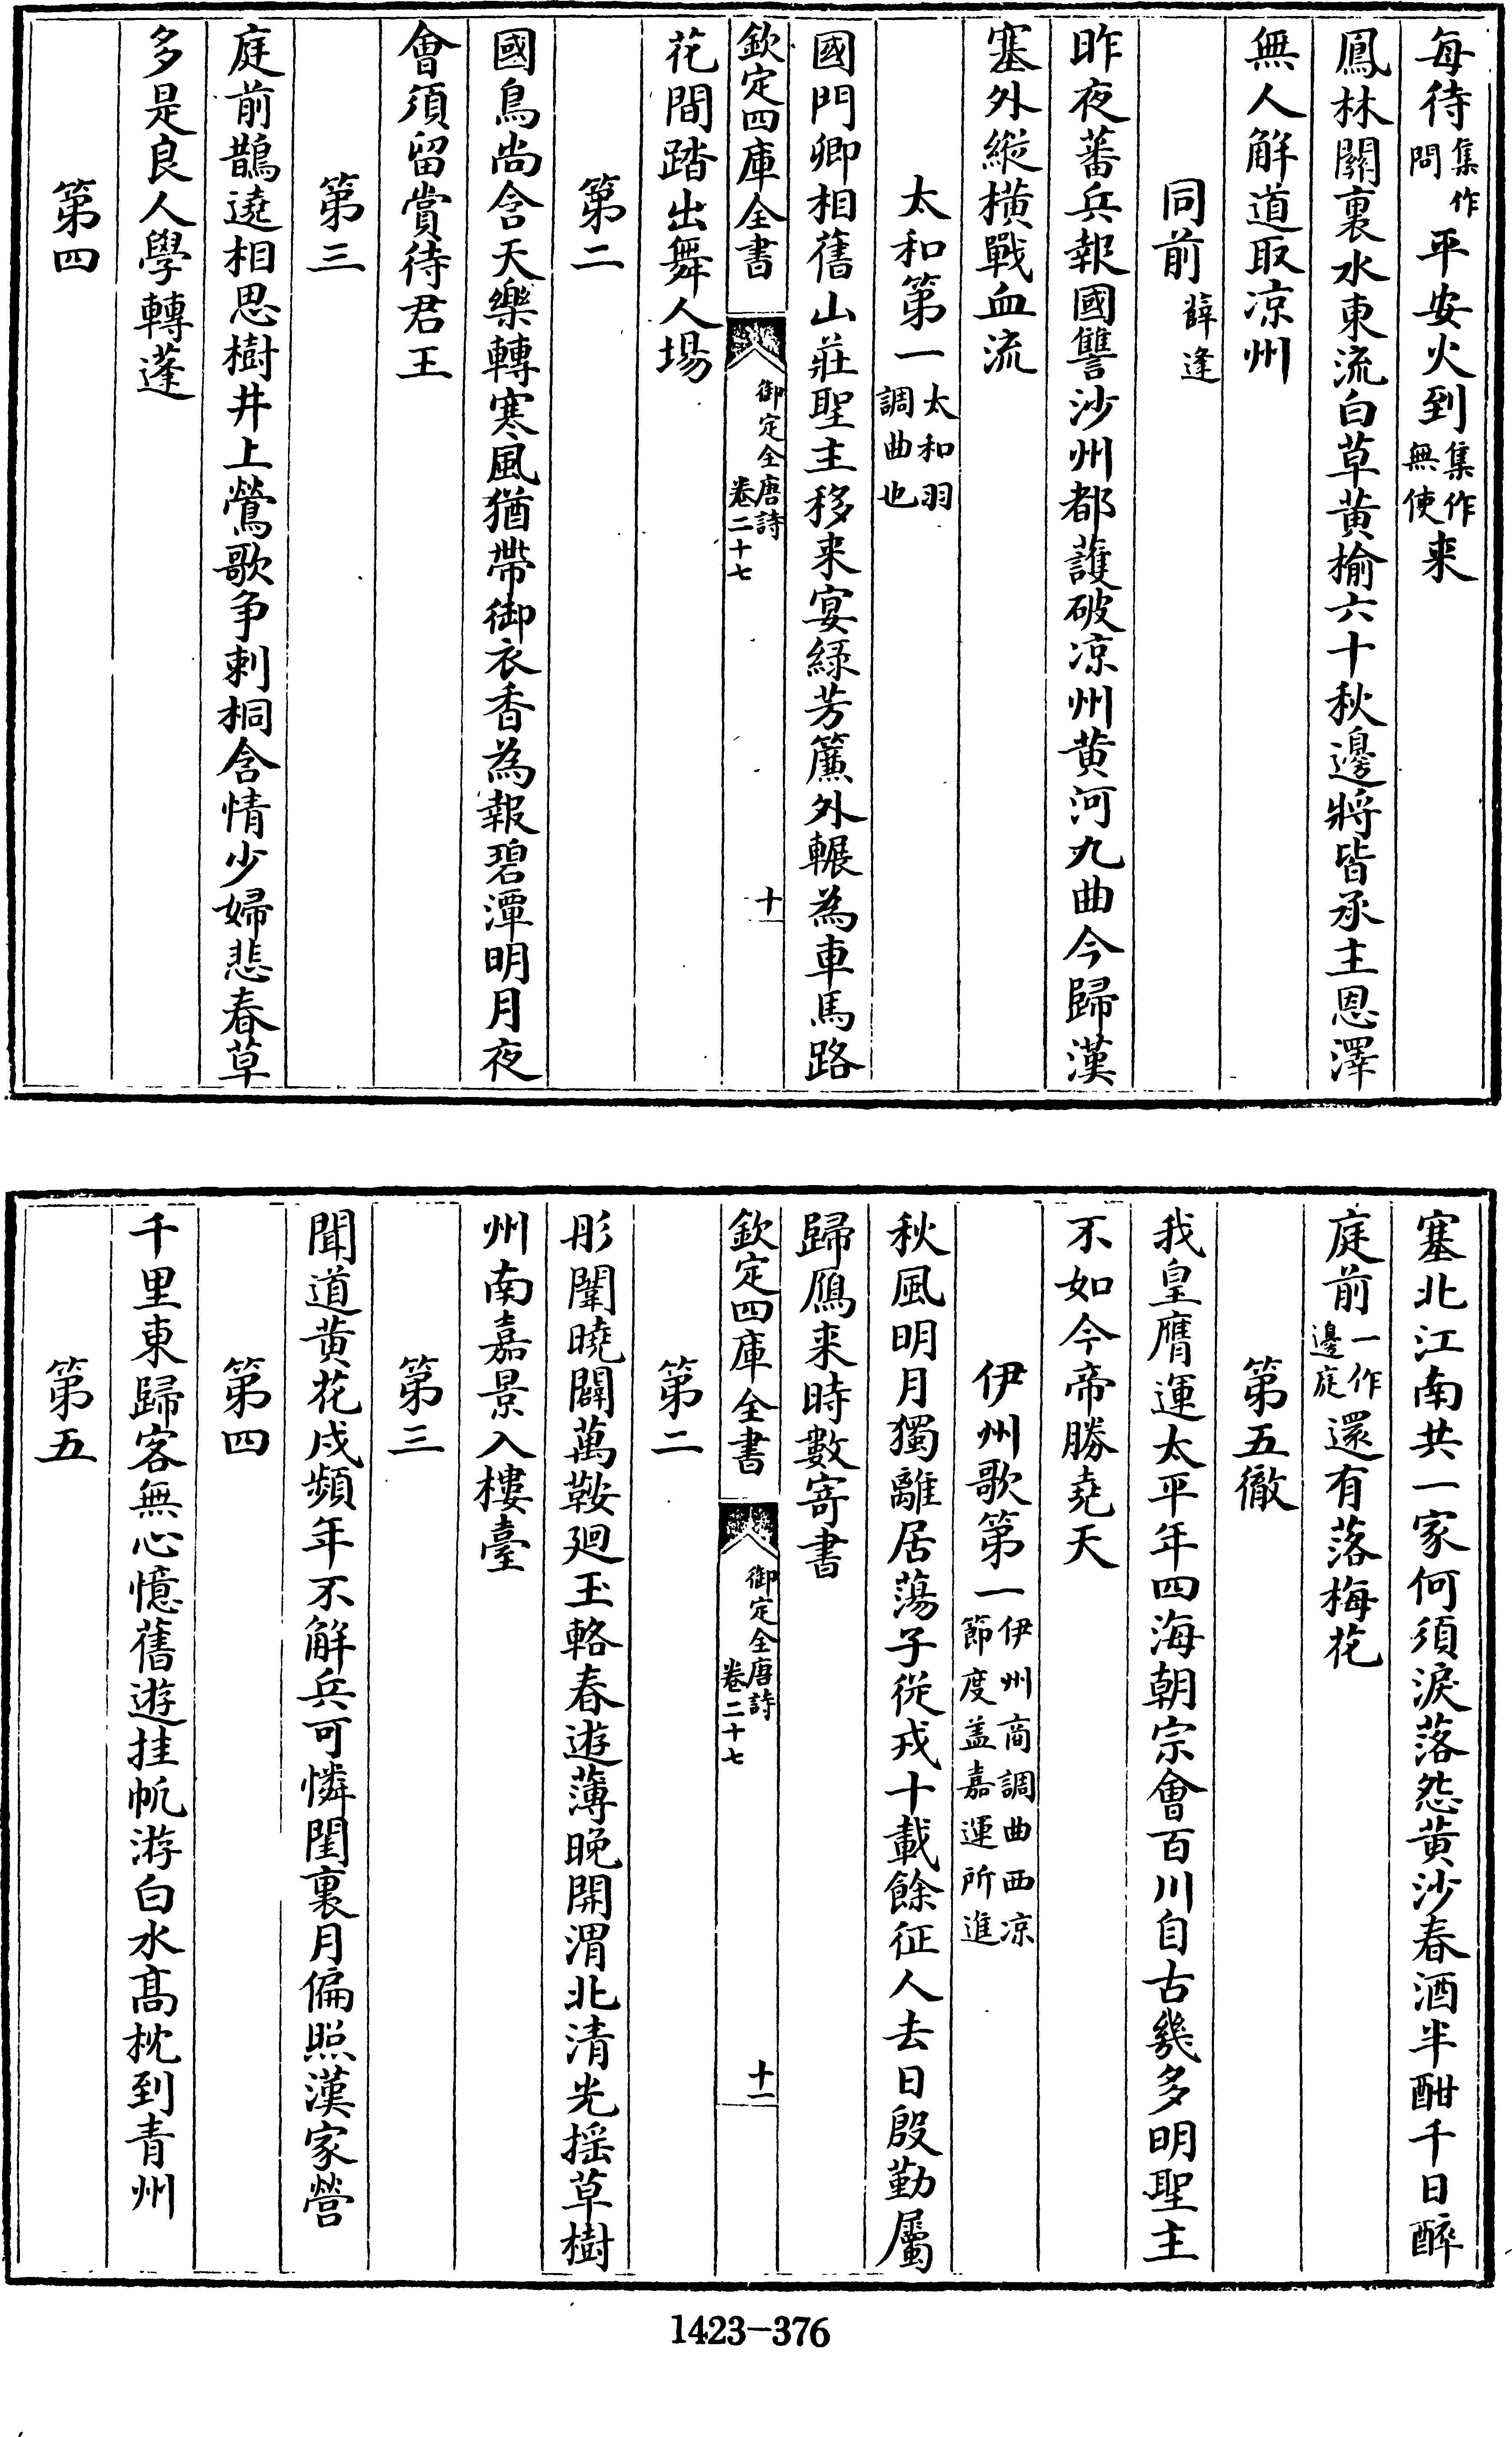 每待集作問平安火到集作無使来
鳳林關裏水東流白草黄榆六十秋邊將皆承主恩澤
無人解道取凉州
同前薛逢
昨夜蕃兵報國讐沙州都䕶破凉州黄河九曲今歸漢
塞外縱横戰血流
太和第一太和羽調曲也
國門卿相舊山莊聖主移来宴緑芳簾外輾為車馬路
欽定四庫全書
御定全唐詩卷二十七
十
花間踏出舞人場
第二
國鳥尚含天樂轉寒風猶帶御衣香為報碧潭明月夜
會須留賞待君王
第三
庭前鵲遶相思樹井上鶯歌争刺桐含情少婦悲春草
多是良人學轉蓬
第四
塞北江南共一家何須淚落怨黄沙春酒半酣千日醉
庭前一作邊庭還有落梅花
第五徹
我皇膺運太平年四海朝宗會百川自古幾多明聖主
不如今帝勝堯天
伊州歌第一伊州商調曲西凉節度盖嘉運所進
秋風明月獨離居蕩子從戎十載餘征人去日殷勤屬
歸鴈来時數寄書
欽定四庫全書
御定全唐詩卷二十七
十一
第二
彤闈曉闢萬鞍廻玉輅春遊薄晚開渭北清光摇草樹
州南嘉景入樓臺
第三
聞道黄花戍頻年不解兵可憐閨裏月偏照漢家營
第四
千里東歸客無心憶舊遊挂帆游白水髙枕到青州
第五
1423-376